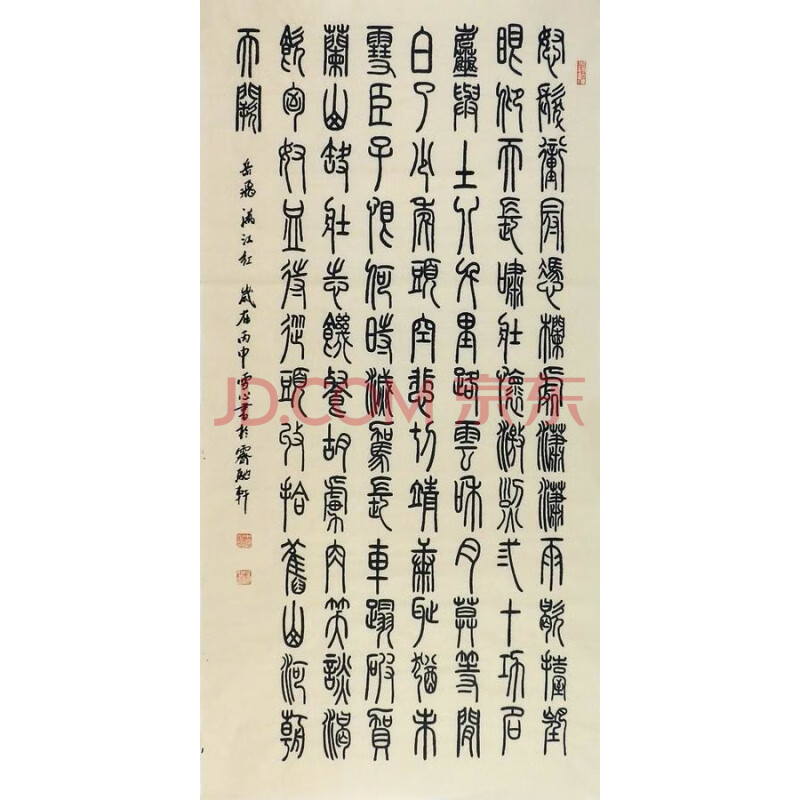 怒髮衝冠憑欄處瀟瀟雨歇擡望
眼仰天長嘯壯懷激烈弎十功名
塵與土八千里路雲和月莫等閒
白了少年頭空悲切靖康恥猶未
雪臣子恨何時滅駕長車蹋破賀
蘭山缺壯志饑餐胡虜肉笑談渴
飲匈奴血待從頭收拾舊山河朝
天闕
岳飛 滿江紅 歲在丙申雪心書於軒
JD.COM 京东